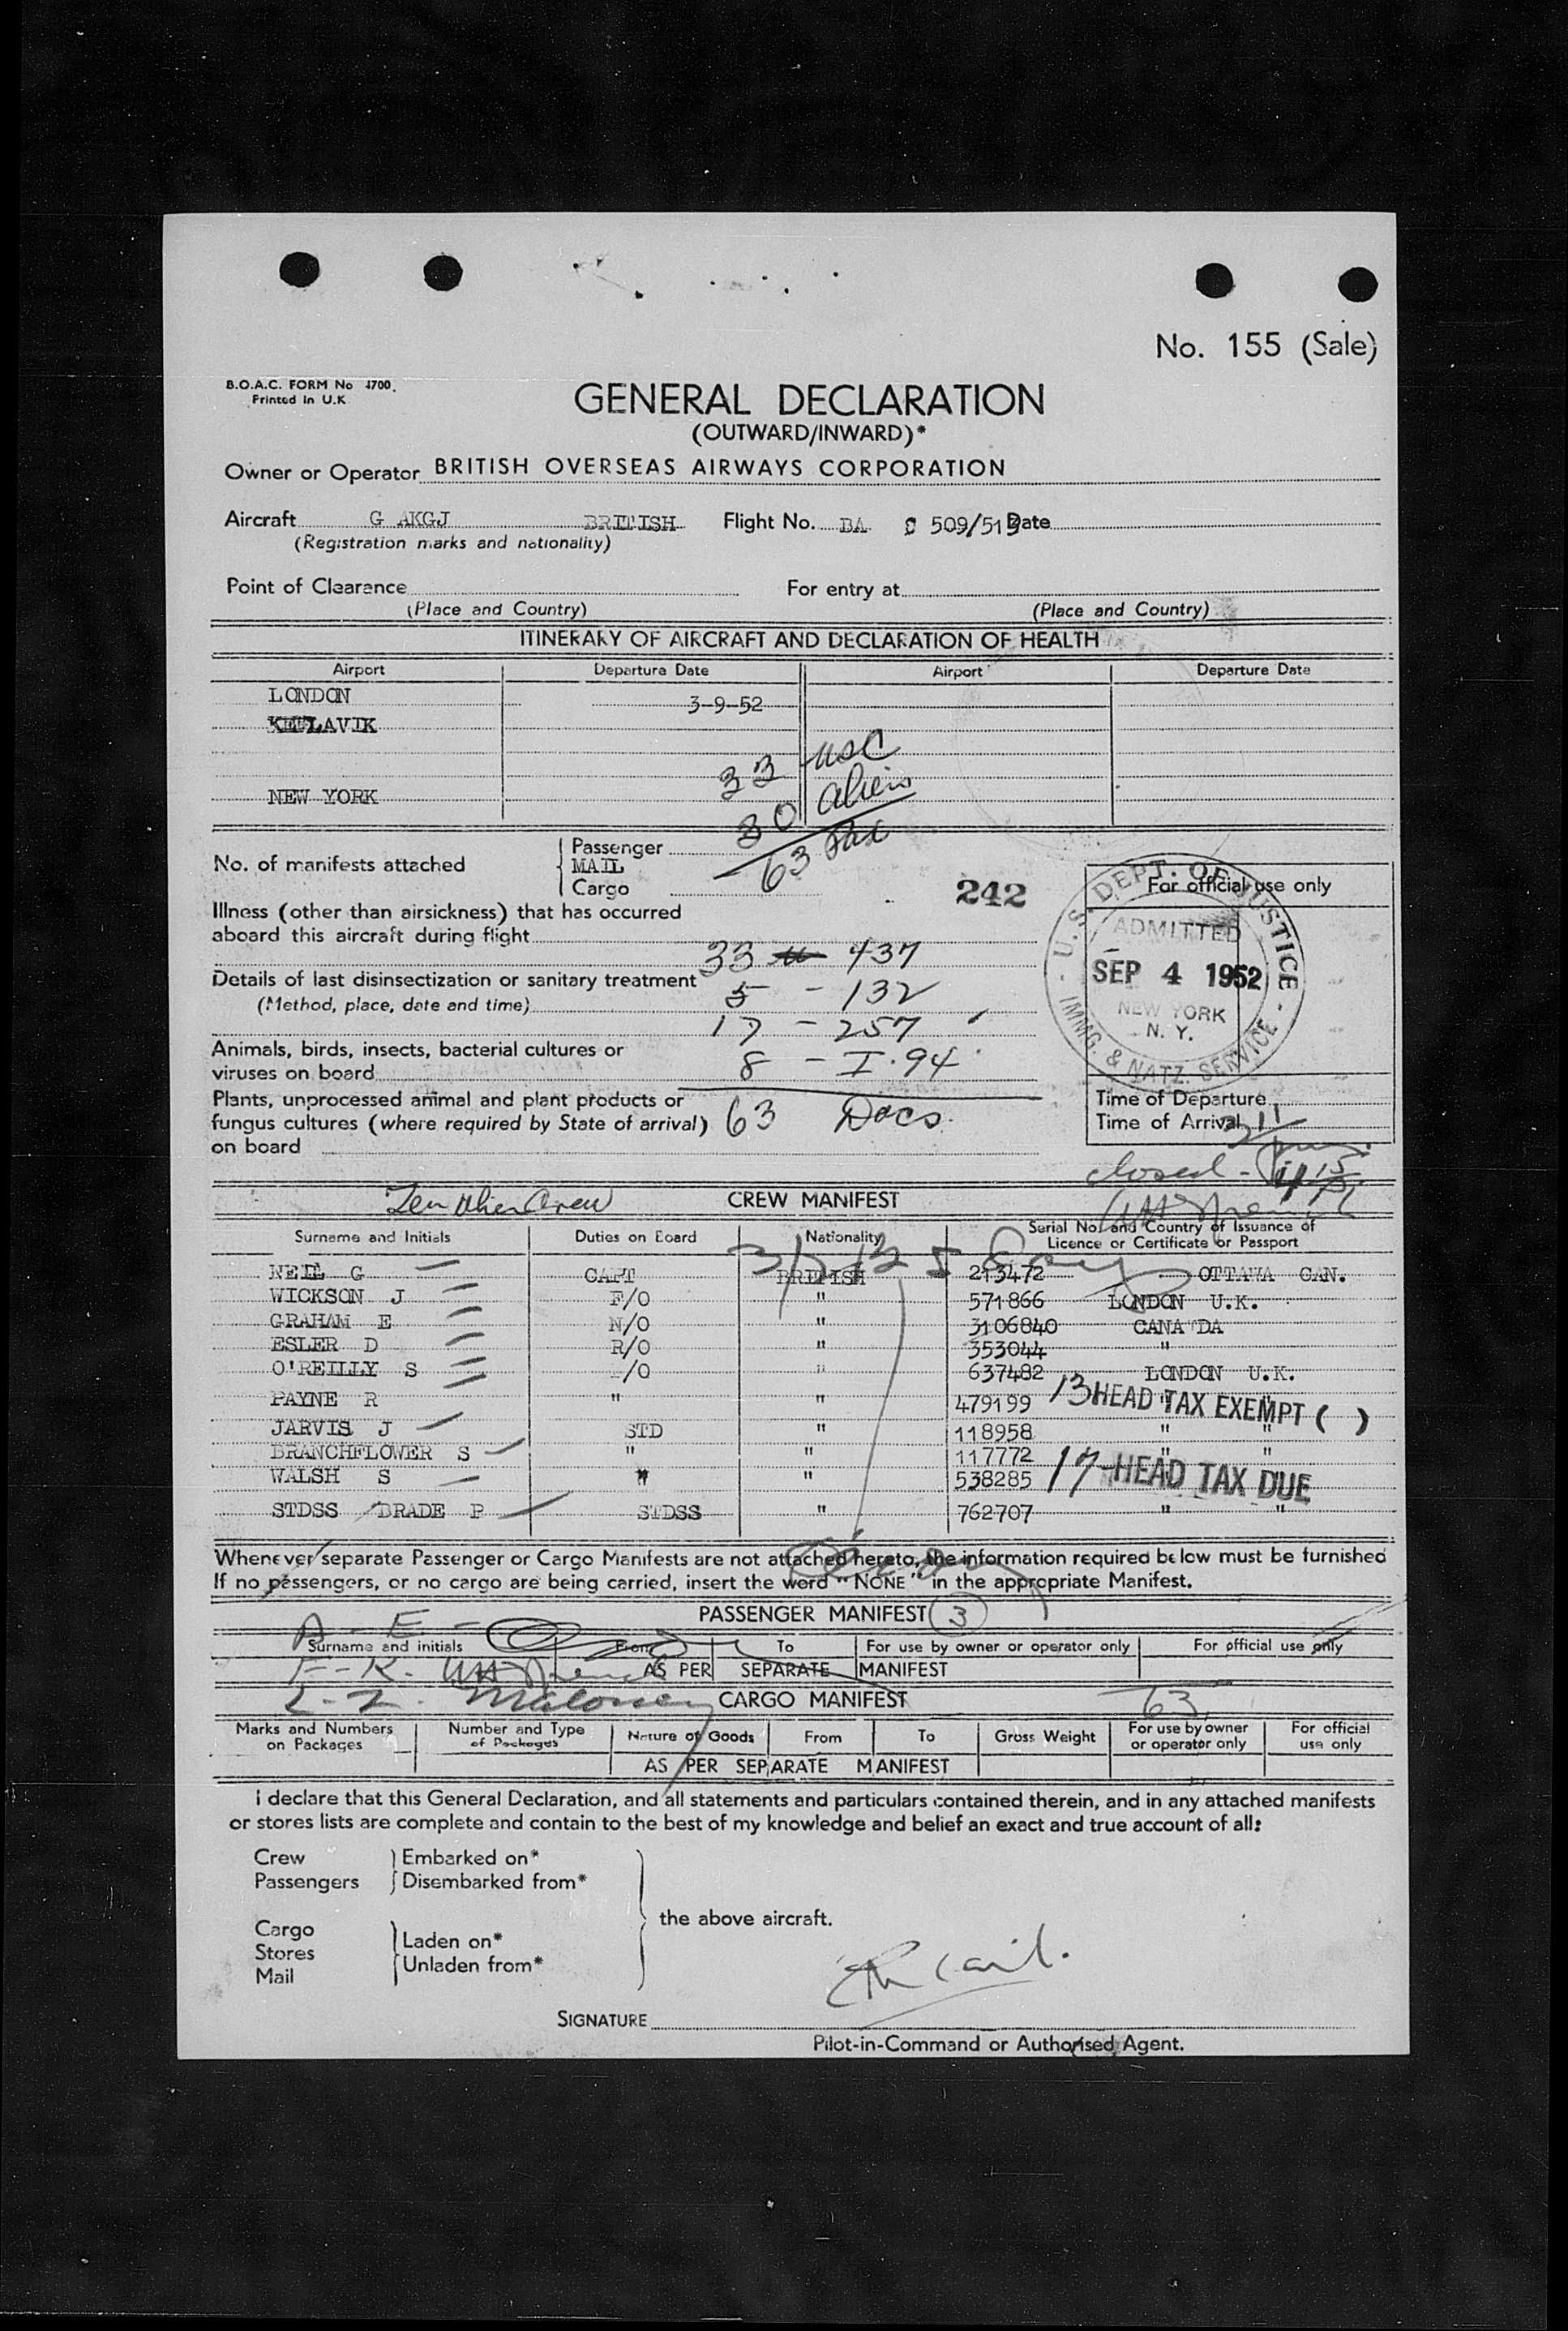 No. 155 (Sale)
B.O.A.C. FORM No 4700.
Printed in U.K
GENERAL DECLARATION
(OUTWARD/INWARD)*
Owner or Operator BRITISH OVERSEAS AIRWAYS CORPORATION
Aircraft G AKGJ BRITISH Flight No. BA C 509/513 Date
(Registration marks and nationality)
Point of Clearance For entry at
(Place and Country) (Place and Country)
ITINERARY OF AIRCRAFT AND DECLARATION OF HEALTH
Airport Departure Date Airport Departure Date
LONDON 3-9-52
KEFLAVIK
33 USC
NEW YORK
30 aliens
63 Pax
No. of manifests attached
Passenger
MAIL
Cargo
242
For official use only
U.S. DEPT. OF JUSTICE
ADMITTED
SEP 4 1952
NEW YORK
N. Y.
IMMG. & NATZ. SERVICE
Illness (other than airsickness) that has occurred
aboard this aircraft during flight
33 437
Details of last disinsectization or sanitary treatment
5 - 132
(Method, place, date and time)
17 - 257
Animals, birds, insects, bacterial cultures or
viruses on board
8 - I.94
Plants, unprocessed animal and plant products or
fungus cultures (where required by State of arrival)
on board
63 Docs.
Time of Departure
Time of Arrival
closed -
Ten Alien Crew
CREW MANIFEST
Surname and Initials Duties on Board Nationality Serial No. and Country of Issuance of
Licence or Certificate or Passport
NEIL G CAPT BRITISH 213472 OTTAWA CAN.
WICKSON J F/O " 571866 LONDON U.K.
GRAHAM E N/O " 3106840 CANA DA
ESLER D R/O " 353044 "
O'REILLY S /O " 637482 LONDON U.K.
PAYNE R " " 479199 " "
13 HEAD TAX EXEMPT ( )
JARVIS J STD " 118958 " "
BRANCHFLOWER S " " 117772 " "
WALSH S " " 538285 " "
17-HEAD TAX DUE
STDSS DRADE P STDSS " 762707 " "
Whenever separate Passenger or Cargo Manifests are not attached hereto, the information required below must be furnished
If no passengers, or no cargo are being carried, insert the word "NONE" in the appropriate Manifest.
PASSENGER MANIFEST 3
A - E -
Surname and initials From To For use by owner or operator only For official use only
F - K.
AS PER SEPARATE MANIFEST
L - Z. Maloney
CARGO MANIFEST
63
Marks and Numbers on Packages Number and Type of Packages Nature of Goods From To Gross Weight For use by owner or operator only For official use only
AS PER SEPARATE MANIFEST
I declare that this General Declaration, and all statements and particulars contained therein, and in any attached manifests
or stores lists are complete and contain to the best of my knowledge and belief an exact and true account of all:
Crew Embarked on*
Passengers Disembarked from*
the above aircraft.
Cargo
Stores Laden on*
Mail Unladen from*
SIGNATURE
Pilot-in-Command or Authorised Agent.